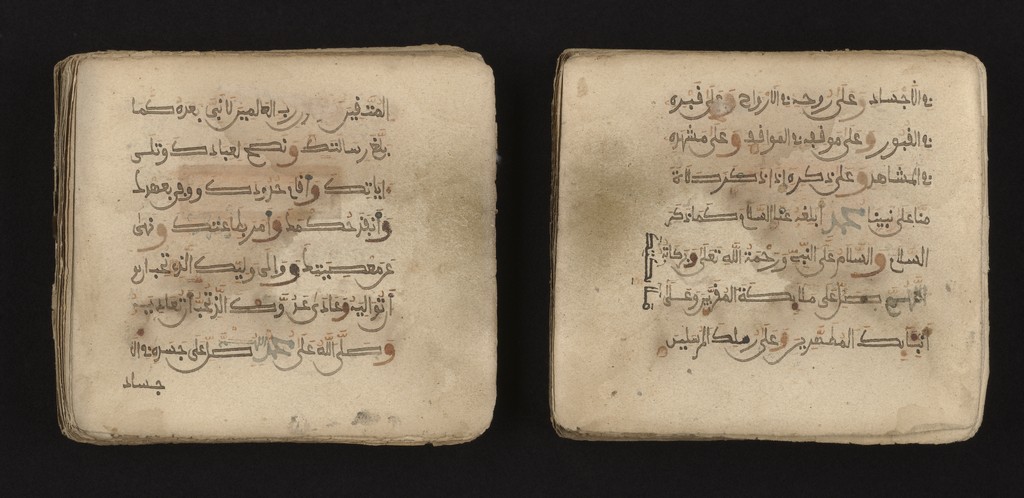 المتقين رب العالمين لا نبي بعده كما
بلغ رسالتك ونصح لعبادك وتلى
اياتك وأقام حدودك ووفى بعهدك
وأنفذ حكمك وأمر بطاعتك ونهى
عن معصيتك ووالى وليك الذي تحب ان
تواليه وعادى عدوك الذي تحب أن تعاديه
وصلى الله على محمد صل على جسده في الا
جساد
في الأجساد وعلى روحه في الارواح وعلى قبره
في القبور وعلى موقفه في المواقف وعلى مشهده
في المشاهد وعلى ذكره إذا ذكر صلاة
منا على نبينا محمد أبلغه عنا السلام كما ذكر
السلام والسلام على النبي ورحمة الله تعلى وبركاته
اللهم صل على ملائكتك المقربين وعلى
أنبيائك المطهرين وعلى رسلك المرسلين